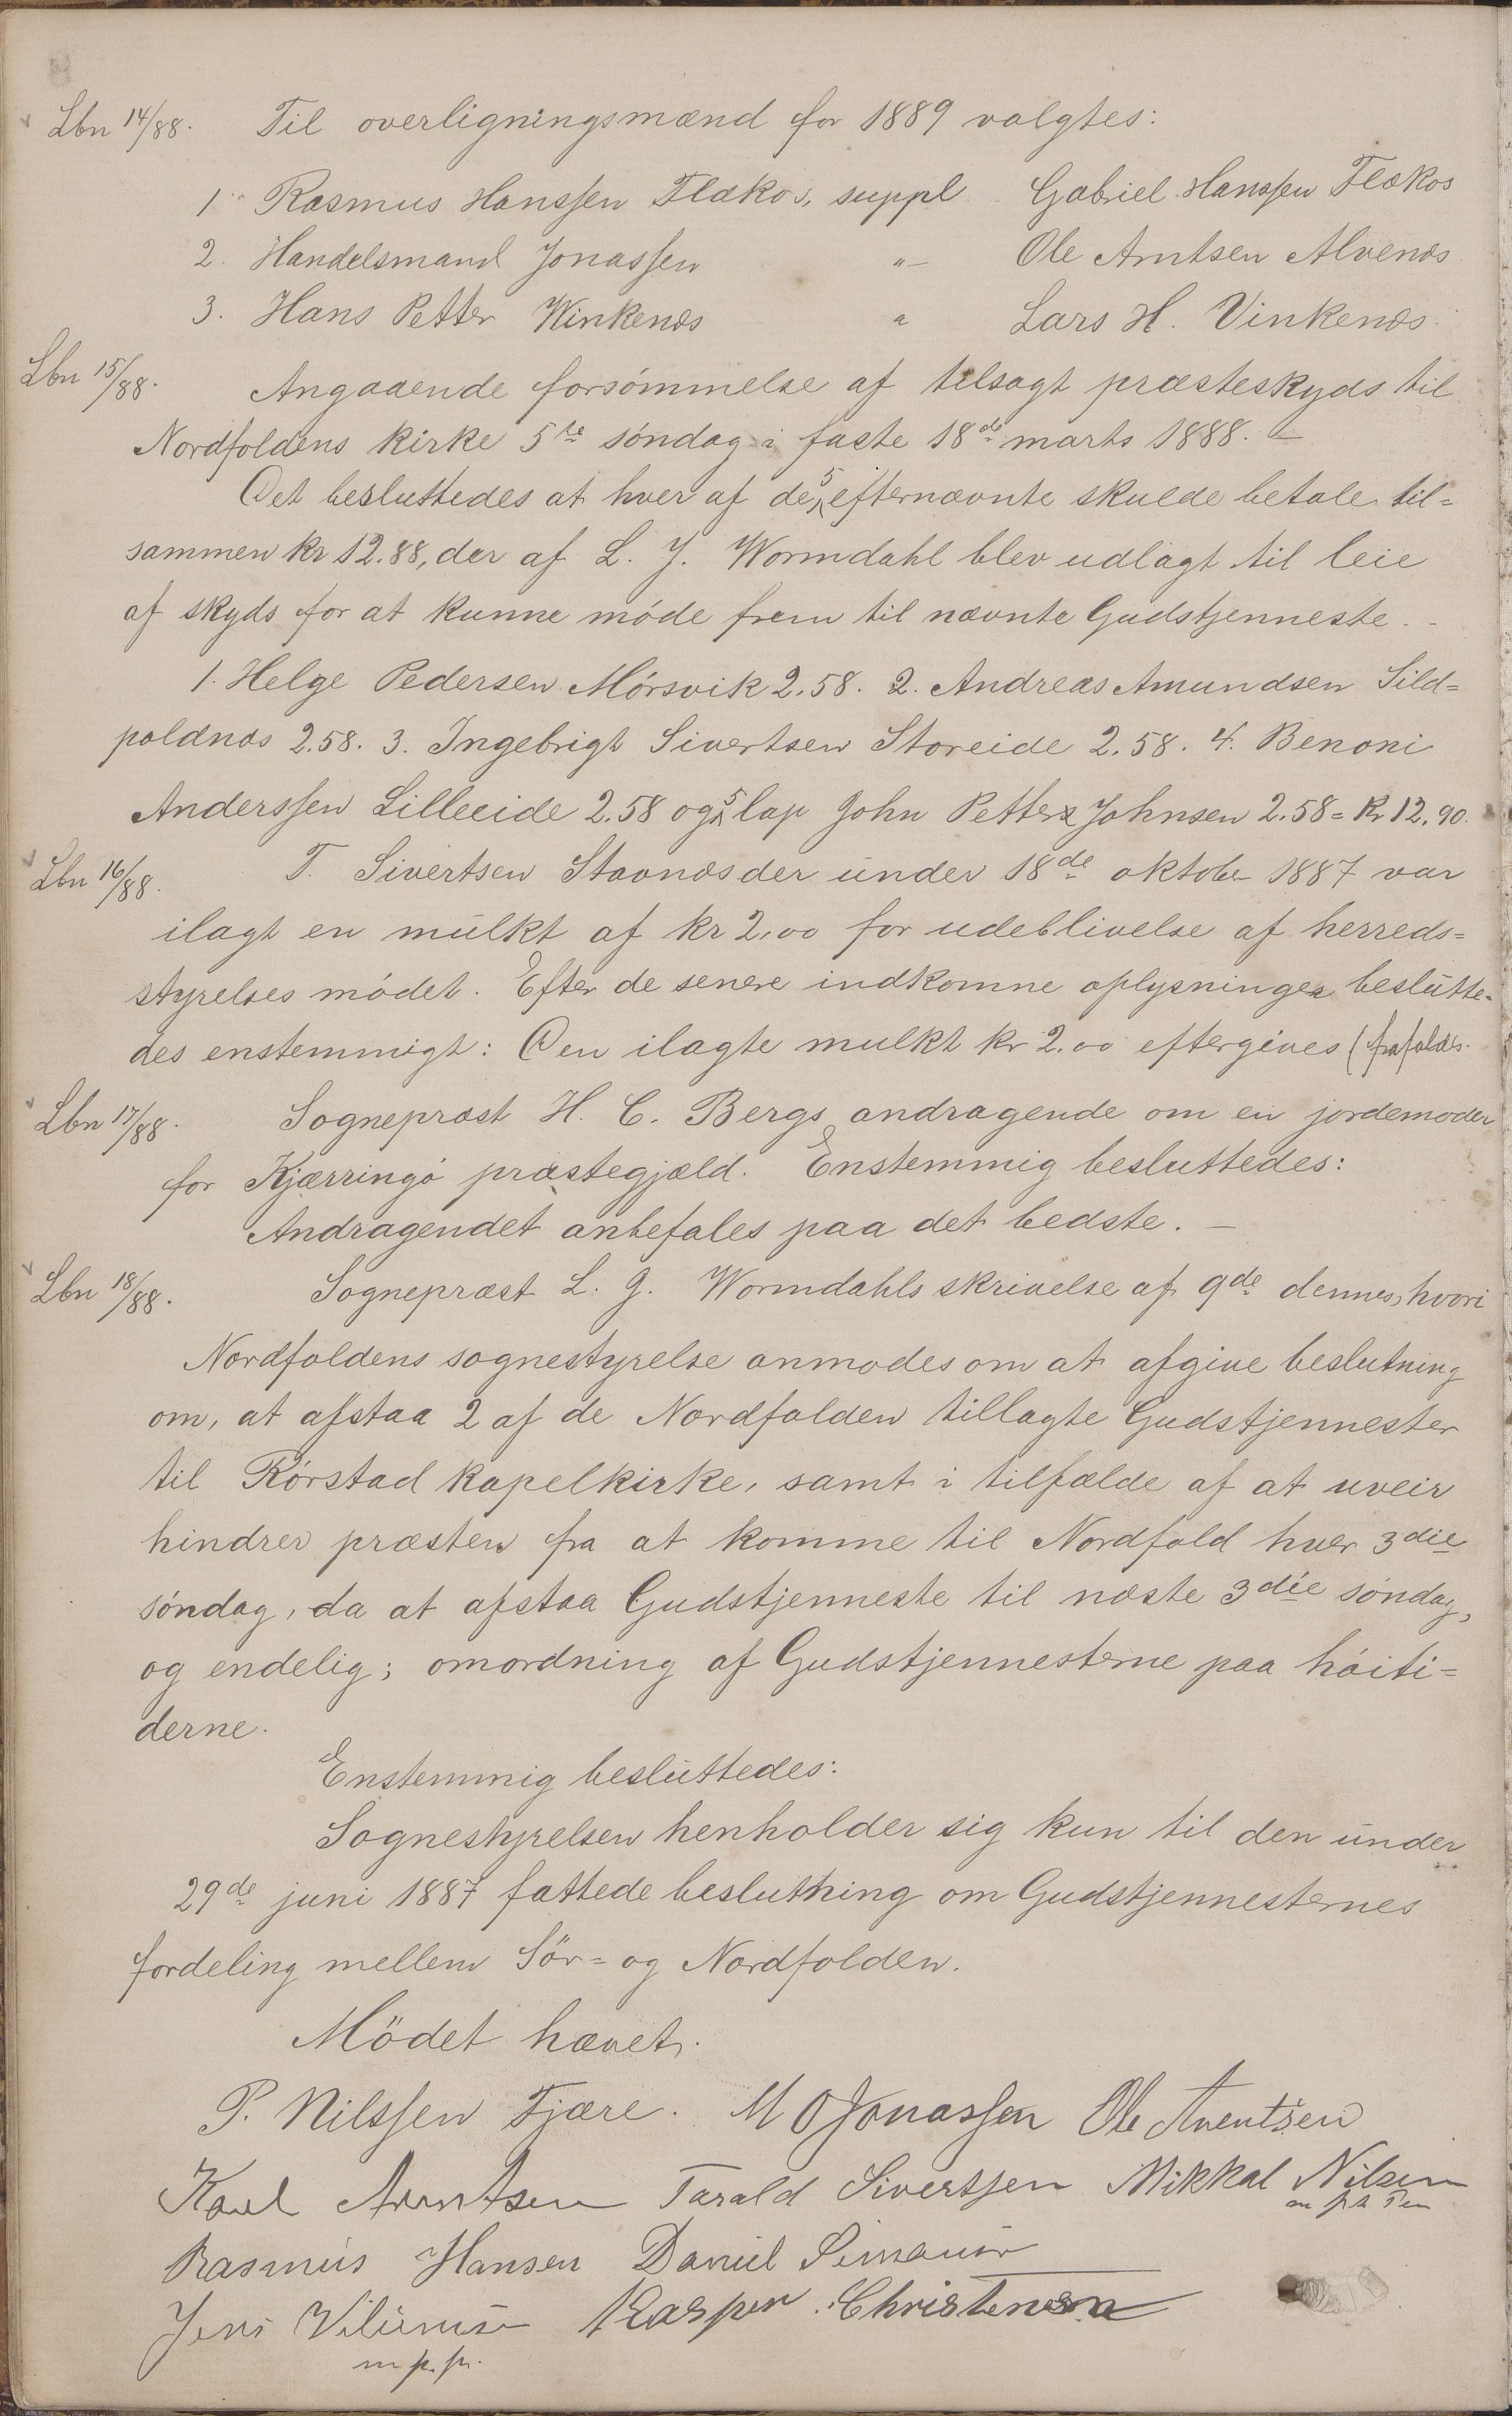 Lbn 14/88. Til overligningsmænd for 1889 valgtes:
1. Rasmus Hanssen Flækos, suppl Gabriel Hanssen Flækos
2. Handelsmand Jonassen "— Ole Arntsen Alvenæs
3. Hans Petter Winkenæs " Lars H. Vinkenæs.
Lbn 15/88. Angaaende forsømmelse af tilsagt præsteskyds til
Nordfoldens kirke 5te søndag i faste 18de marts 1888. —
Det besluttedes at hver af de 5 efternævnte skulde betale til=
sammen kr 12.88, der af L. J. Wormdahl blev udlagt til leie
af skyds for at kunne møde frem til nævnte Gudstjenneste. -
1. Helge Pedersen Mørsvik 2.58. 2. Andreas Amundsen Sild=
poldnæs 2.58. 3. Ingebrigt Sivertsen Storeide 2.58. 4. Benoni
Anderssen Lilleeide 2.58 og 5 lap John Petter Johnsen 2.58 = Kr 12.90.
Lbn 16/88. T. Sivertsen Stavnæs der under 18de oktober 1887 var
ilagt en mulkt af kr 2,00 for udeblivelse af herreds=
styrelses mødet. Efter de senere indkomne oplysninger beslutte=
des enstemmigt: Den ilagte mulkt kr 2.00 eftergives (frafaldes.
Lbn 17/88. Sognepræst H. C. Bergs andragende om en jordemoder
for Kjærringø præstegjæld. Enstemmig besluttedes:
Andragendet anbefales paa det bedste. —
Lbn 18/88. Sognepræst L. J. Wormdahls skrivelse af 9de dennes, hvori
Nordfoldens sognestyrelse anmodes om at afgive beslutning
om, at afstaa 2 af de Nordfolden tillagte Gudstjennester
til Rørstad kapelkirke, samt i tilfælde af at uveir
hindrer præsten fra at komme til Nordfold hver 3die
søndag, da at afstaa Gudstjenneste til næste 3die søndag,
og endelig; omordning af Gudstjennesterne paa høiti=
derne.
Enstemmig besluttedes:
Sognestyrelsen henholder sig kun til den under
29de juni 1887 fattede beslutning om Gudstjennesternes
fordeling mellem Sör= og Nordfolden.
Mödet hævet.
P. Nilssen Fjære. M O Jonassen Ole Arentsen
Karl Arntsen Tarald Sivertsen Mikkal Nilsen
Rasmus Hansen Daniel Simonsen
Jens Kasper Christensen
m p. p.